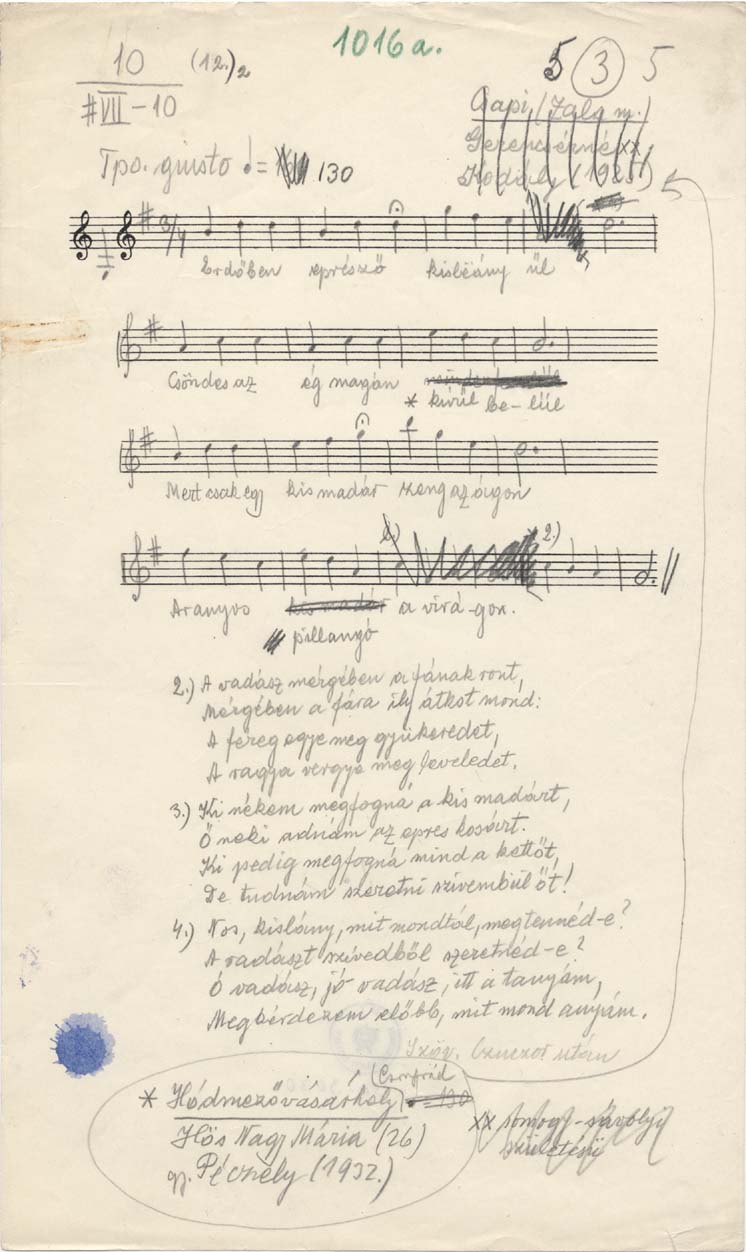 1016a.
10 (12.)2 5 3 5
#VII-10
Gapi, (Zala m.)
Gerencsérné xx
Kodály (1925)
Tpo. giusto ♩= 130
3/4
Erdőben eprésző kisléány ül
Csöndes az ég magán
* kívül be-lül
Mert csak egy kis madár zeng az ágon
2.)
Aranyos kis madár a virá-gon.
pillangó
2.) A vadász mérgében a fának ront,
Mérgében a fára ily átkot mond:
A féreg egye meg gyükeredet,
A ragya vergye meg leveledet.
3.) Ki nékem megfogná a kis madárt,
Ő neki adnám az epres kosárt.
Ki pedig megfogná mind a kettőt,
De tudnám szeretni szívembül őt!
4.) Nos, kislány, mit mondtál, megtennéd-e?
A vadászt szívedből szeretnéd-e?
Ó vadász, jó vadász, itt a tanyám,
Megkérdezem előbb, mit mond anyám.
Szöv. Czuczor után
(Csongrád)
* Hódmezővásárhely ♩=130
Hős Nagy Mária (26)
gy. Péczely (1932.)
xx Somogy-sávolyi
születésü